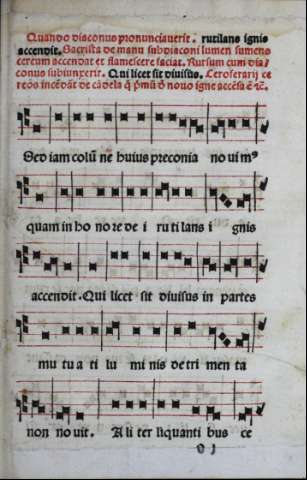 Quando diaconus pronunciauerit. rutilans ignis
accendit. Sacrista de manu subdiaconi lumen sumens
cereum accendat et flamescere faciat. Rursum cum dia/
conus subiunxerit. Qui licet sit diuisus. Ceroferarij ce
reos incēdāt de cādela q̄ p̄mū d̄ nouo igne accēsa ē ⁊c̄.
Sed iam colū nē huius preconia no uim⁹
quam in ho no re de i ru ti lans i gnis
accendit. Qui licet sit diuisus in partes
mu tu a ti lu mi nis de tri men ta
non no uit. A li ter liquanti bus ce